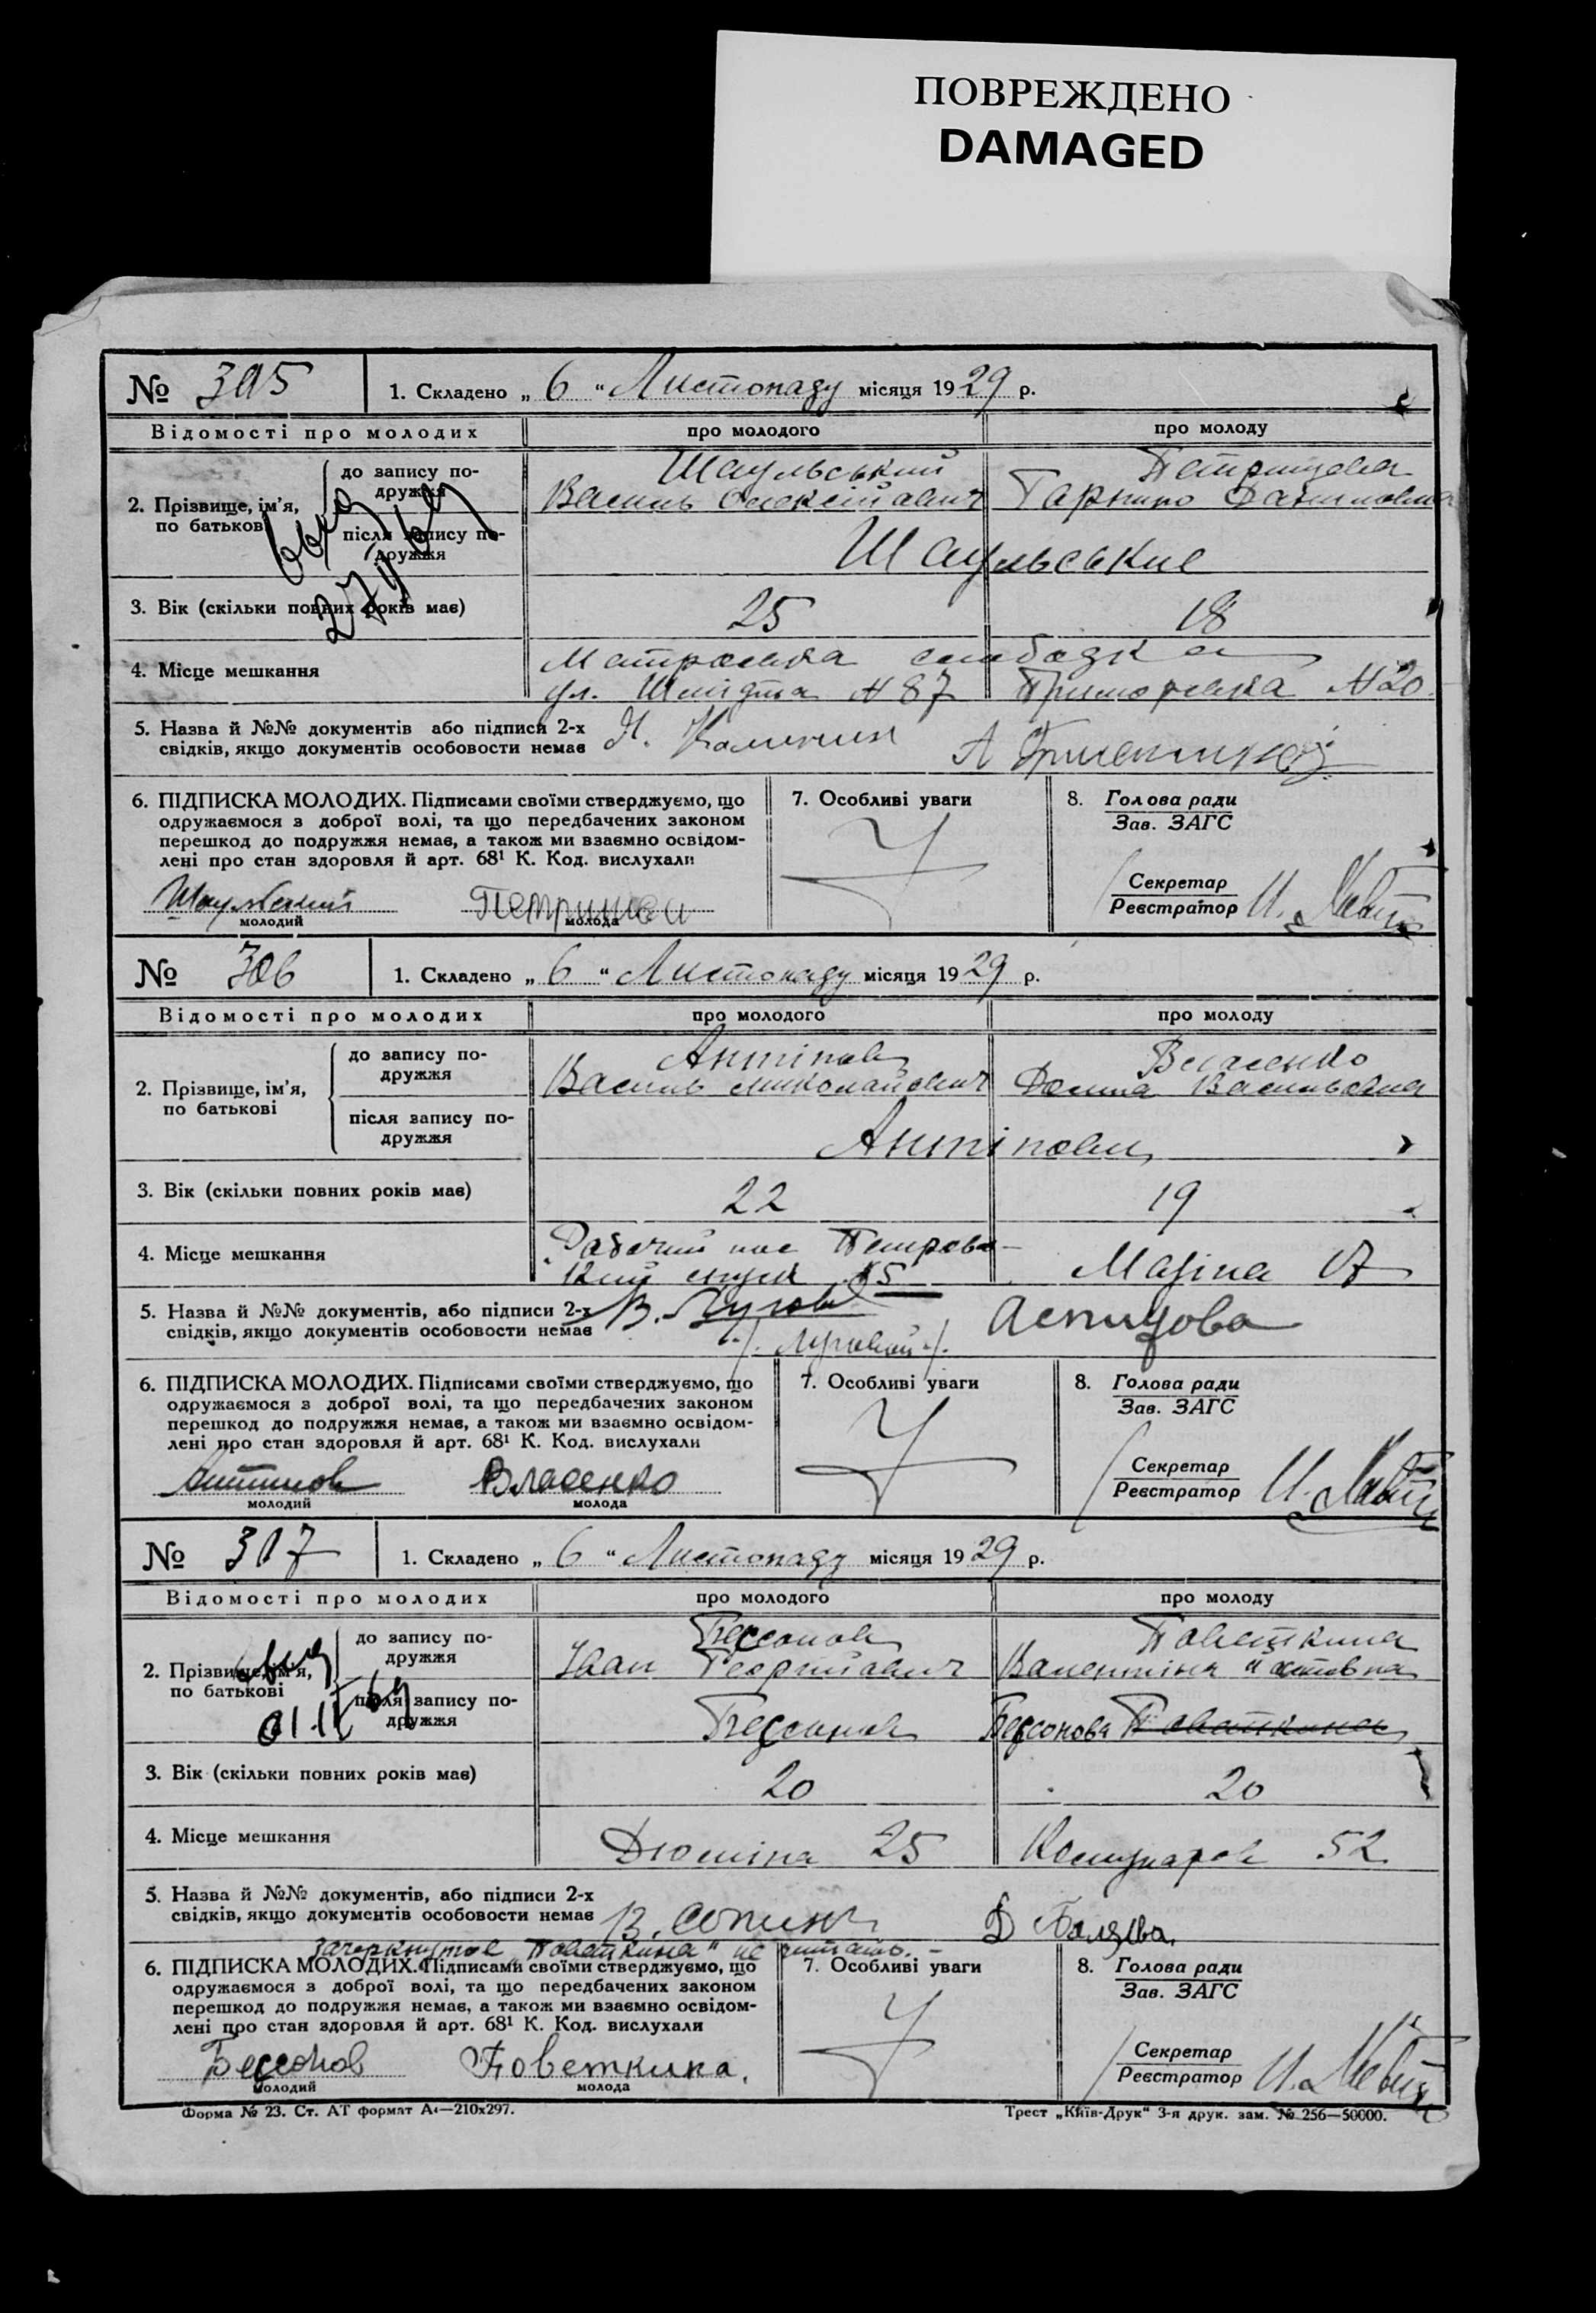 ПОВРЕЖДЕНО
DAMAGED
№ 305 1. Складено „ 6 “ Листопаду місяця 1929 р.
Відомості про молодих про молодого про молоду
2. Прізвище, ім’я, по батькові до запису подружжя Шаульський
Василь Олексійович
після запису подружжя Шаульские
3. Вік (скільки повних років має) 25 18
4. Місце мешкання
ул. Шмідта № 87 Приморська № 20
5. Назва й №№ документів або підписи 2-х
свідків, якщо документів особовости немає
6. ПІДПИСКА МОЛОДИХ. Підписами своїми стверджуємо, що
одружаємося з доброї волі, та що передбачених законом
перешкод до подружжя немає, а також ми взаємно освідом-
лені про стан здоровля й арт. 68¹ К. Код. вислухали
молодий молода
7. Особливі уваги
8. Голова ради
Зав. ЗАГС
Секретар
Реєстратор
№ 306 1. Складено „ 6 “ Листопаду місяця 1929 р.
Відомості про молодих про молодого про молоду
2. Прізвище, ім’я, по батькові до запису подружжя Антіпов Власенко
Василь Миколайович Васильовна
після запису подружжя Антіпови
3. Вік (скільки повних років має) 22 19
4. Місце мешкання
5. Назва й №№ документів, або підписи 2-х
свідків, якщо документів особовости немає
6. ПІДПИСКА МОЛОДИХ. Підписами своїми стверджуємо, що
одружаємося з доброї волі, та що передбачених законом
перешкод до подружжя немає, а також ми взаємно освідом-
лені про стан здоровля й арт. 68¹ К. Код. вислухали
Антипов Власенко
молодий молода
7. Особливі уваги
8. Голова ради
Зав. ЗАГС
Секретар
Реєстратор
№ 307 1. Складено „ 6 “ Листопаду місяця 1929 р.
Відомості про молодих про молодого про молоду
2. Прізвище, ім’я, по батькові до запису подружжя Бессонов Поветкина
Іван Георгійович Валентіна
після запису подружжя Бессонов Бессонова Поветкина
3. Вік (скільки повних років має) 20 20
4. Місце мешкання Дюміна 25 Комунаров 52
5. Назва й №№ документів, або підписи 2-х
свідків, якщо документів особовости немає
зачеркнутое „Поветкина“ не читать. –
6. ПІДПИСКА МОЛОДИХ. Підписами своїми стверджуємо, що
одружаємося з доброї волі, та що передбачених законом
перешкод до подружжя немає, а також ми взаємно освідом-
лені про стан здоровля й арт. 68¹ К. Код. вислухали
Бессонов Поветкина.
молодий молода
7. Особливі уваги
8. Голова ради
Зав. ЗАГС
Секретар
Реєстратор
Форма № 23. Ст. АТ формат А4—210x297. Трест „Київ-Друк“ 3-я друк. зам. № 256—50000.